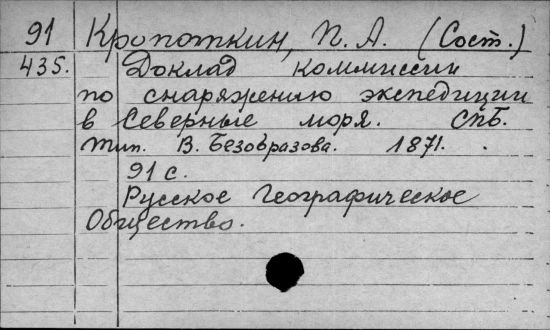 91 Кропоткин, П. А. (Сост.)
435. Доклад коммиссии
по снаряжению экспедиции
в Северные моря. СПБ.
тип. В. Безобразова. 1871.
91 с.
Русское Географическое
Общество.